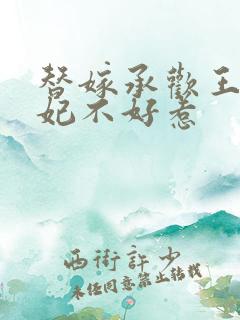 替嫁承歡王
妃不好惹
西街許少
未任同意禁止转载